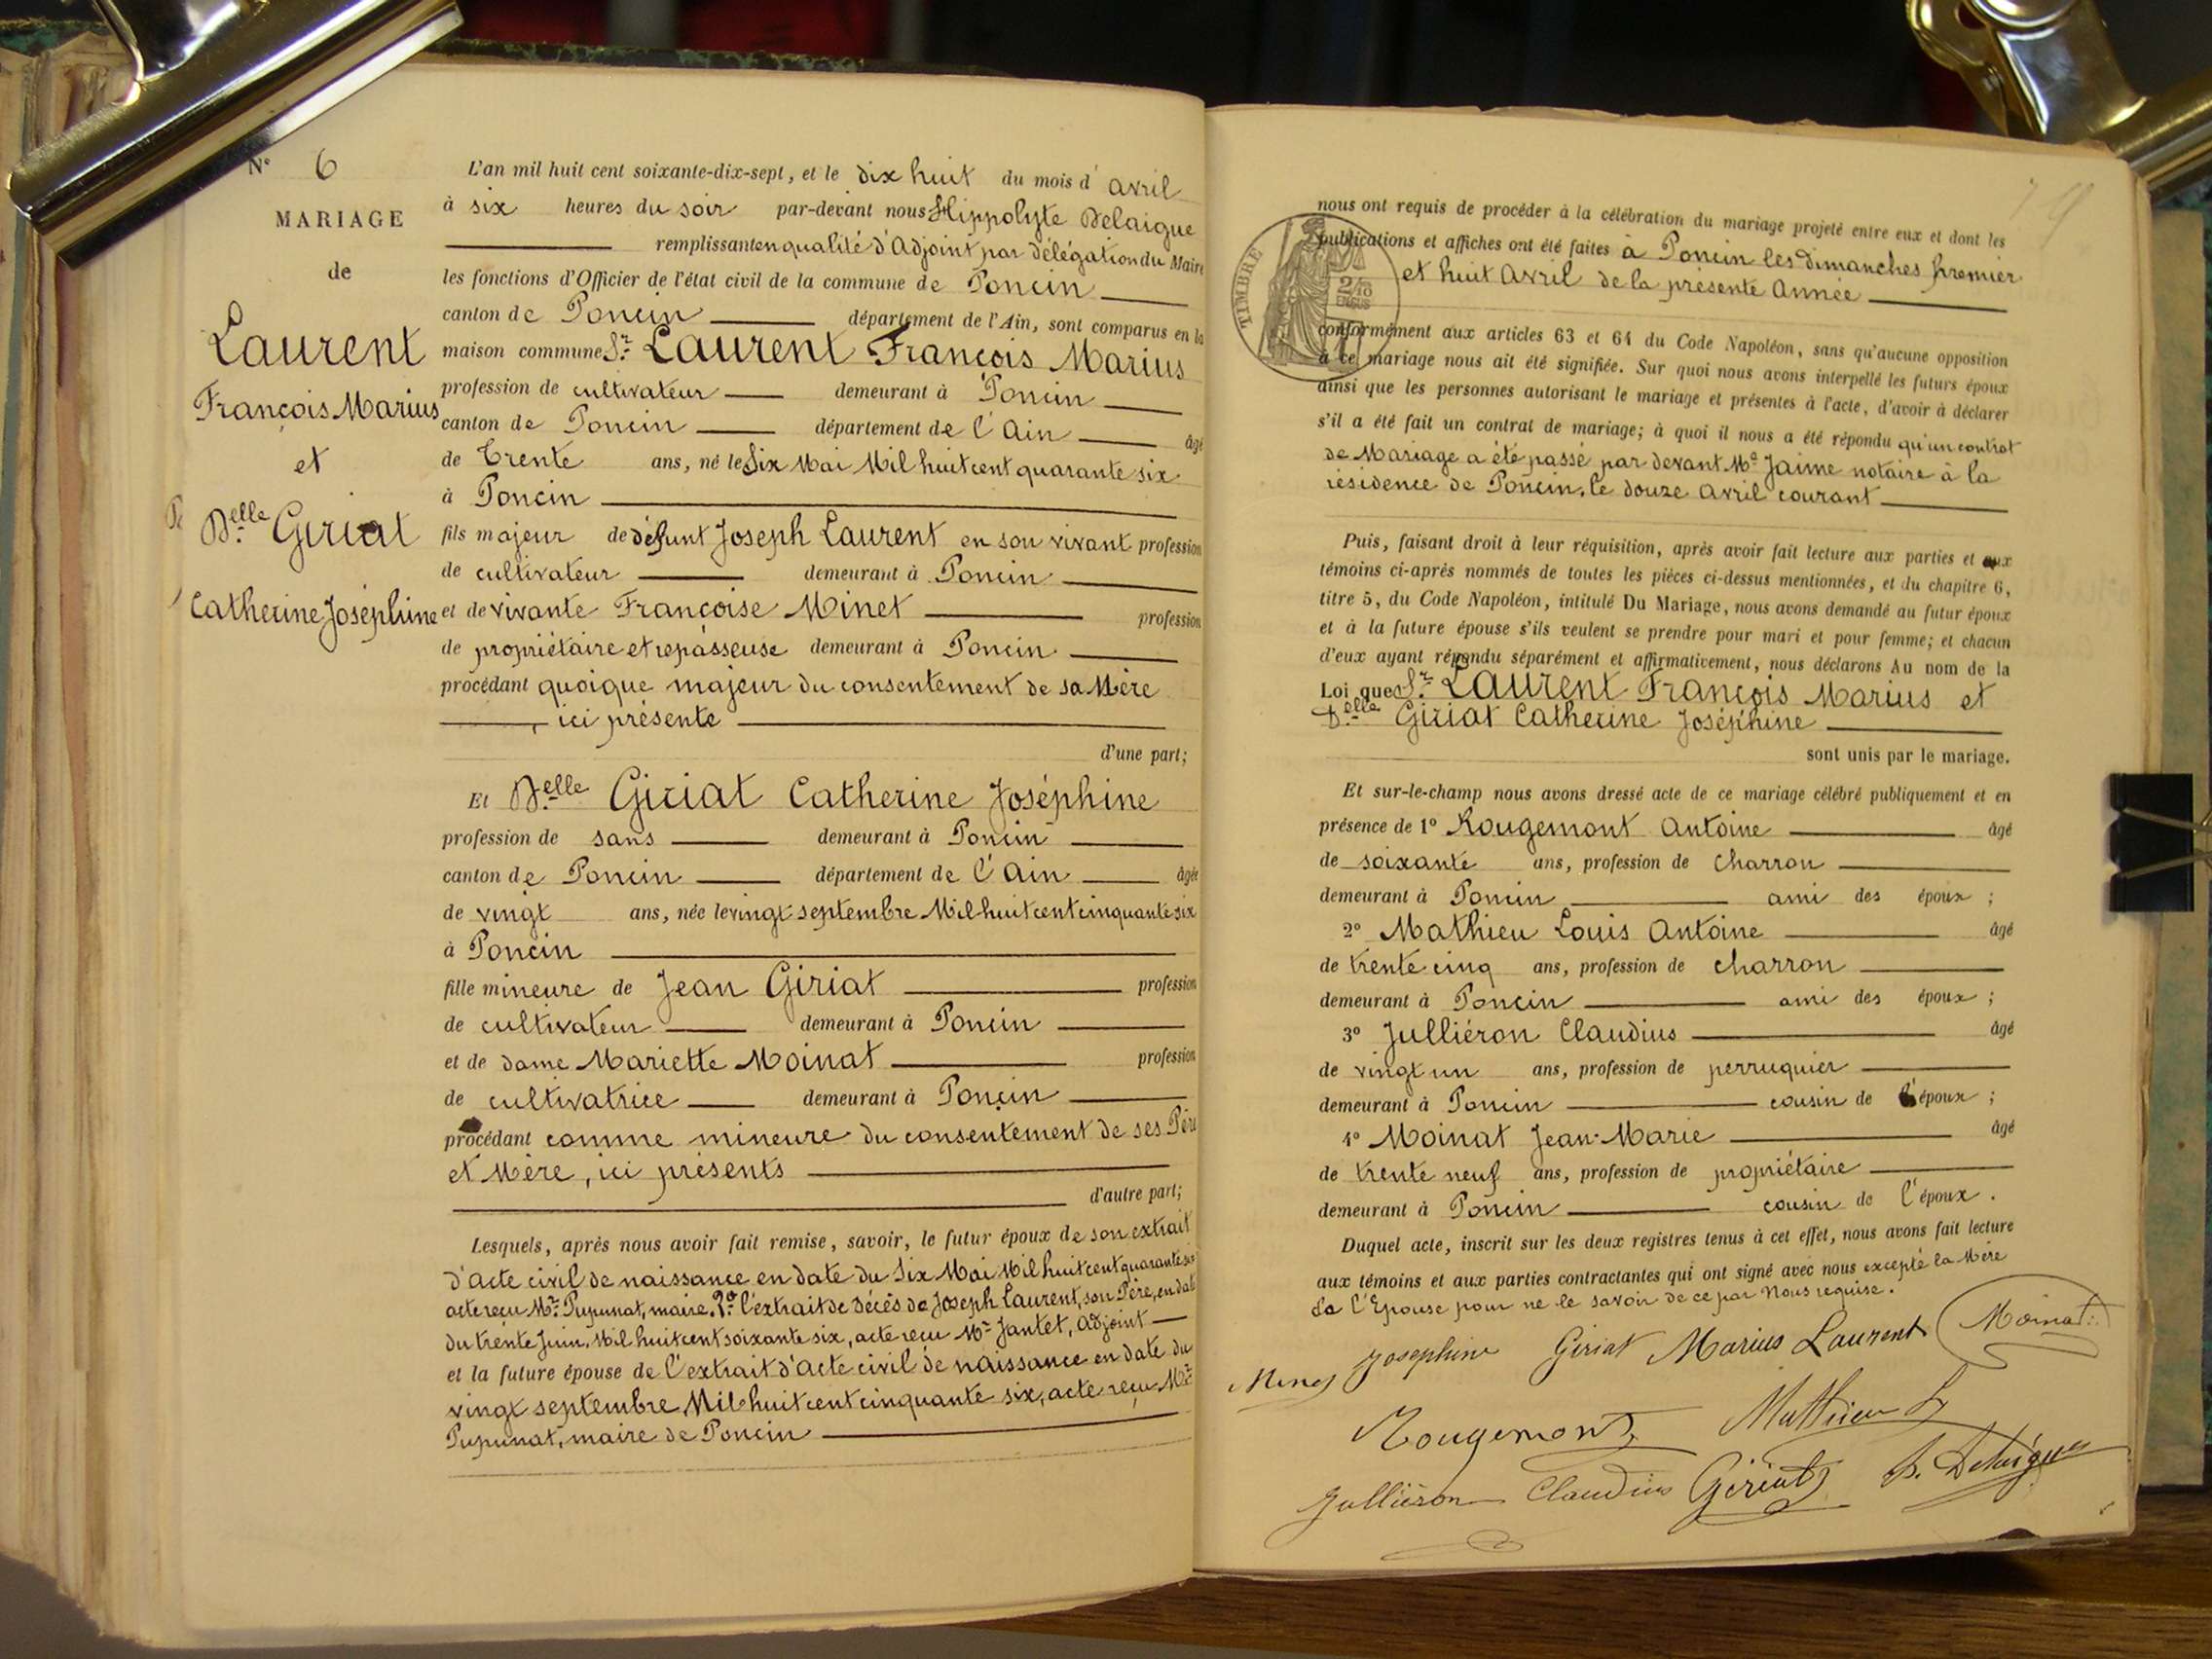 N° 6
MARIAGE
de
Laurent
François Marius
et
Delle Giriat
Catherine Joséphine
L'an mil huit cent soixante-dix-sept, et le dix huit du mois d'avril
à six heures du soir par-devant nous Hippolyte Delaigue
remplissant en qualité d'Adjoint par délégation du Maire
les fonctions d'Officier de l'état civil de la commune de Poncin
canton de Poncin département de l'Ain, sont comparus en la
maison commune Sr. Laurent François Marius
profession de cultivateur demeurant à Poncin
canton de Poncin département de l'Ain âgé
de trente ans, né le Six Mai Mil huit cent quarante six
à Poncin
fils majeur de défunt Joseph Laurent en son vivant profession
de cultivateur demeurant à Poncin
et de vivante Françoise Minet profession
de propriétaire et repasseuse demeurant à Poncin
procédant quoique majeur du consentement de sa Mère
, ici présente
d'une part;
Et Delle Giriat Catherine Joséphine
profession de sans demeurant à Poncin
canton de Poncin département de l'Ain âgée
de vingt ans, née le vingt septembre Mil huit cent cinquante six
à Poncin
fille mineure de Jean Giriat profession
de cultivateur demeurant à Poncin
et de dame Mariette Moinat profession
de cultivatrice demeurant à Poncin
procédant comme mineure du consentement de ses Père
et Mère, ici présents
d'autre part;
Lesquels, après nous avoir fait remise, savoir, le futur époux de son extrait
d'acte civil de naissance en date du Six Mai Mil huit cent quarante six
acte reçu Mr. Pupunat, maire. 2° l'extrait de décès de Joseph Laurent, son Père, en date
du trente Juin Mil huit cent soixante six, acte reçu Mr Jantet, Adjoint
et la future épouse de l'extrait d'acte civil de naissance en date du
vingt septembre Mil huit cent cinquante six, acte reçu Mr
Pupunat, maire de Poncin
79
TIMBRE
nous ont requis de procéder à la célébration du mariage projeté entre eux et dont les
publications et affiches ont été faites à Poncin les dimanches premier
et huit Avril de la présente Année
conformément aux articles 63 et 64 du Code Napoléon, sans qu'aucune opposition
à ce mariage nous ait été signifiée. Sur quoi nous avons interpellé les futurs époux
ainsi que les personnes autorisant le mariage et présentes à l'acte, d'avoir à déclarer
s'il a été fait un contrat de mariage; à quoi il nous a été répondu qu'un contrat
de Mariage a été passé par devant Me Jaime notaire à la
résidence de Poncin, le douze Avril courant
Puis, faisant droit à leur réquisition, après avoir fait lecture aux parties et aux
témoins ci-après nommés de toutes les pièces ci-dessus mentionnées, et du chapitre 6,
titre 5, du Code Napoléon, intitulé Du Mariage, nous avons demandé au futur époux
et à la future épouse s'ils veulent se prendre pour mari et pour femme; et chacun
d'eux ayant répondu séparément et affirmativement, nous déclarons Au nom de la
Loi que Sr. Laurent François Marius et
Delle Giriat Catherine Joséphine
sont unis par le mariage.
Et sur-le-champ nous avons dressé acte de ce mariage célébré publiquement et en
présence de 1° Rougemont Antoine âgé
de soixante ans, profession de charron
demeurant à Poncin ami des époux ;
2° Mathieu Louis Antoine âgé
de trente cinq ans, profession de charron
demeurant à Poncin ami des époux ;
3° Julliéron Claudius âgé
de vingt un ans, profession de perruquier
demeurant à Poncin cousin de l'époux ;
4° Moinat Jean-Marie âgé
de trente neuf ans, profession de propriétaire
demeurant à Poncin cousin de l'époux.
Duquel acte, inscrit sur les deux registres tenus à cet effet, nous avons fait lecture
aux témoins et aux parties contractantes qui ont signé avec nous excepté la Mère
de l'Epouse pour ne le savoir de ce par Nous requise.
Josephine Giriat Marius Laurent Moinat
Minet
Rougemont Mathieu
Julliéron Claudius Giriat h. Delaigue